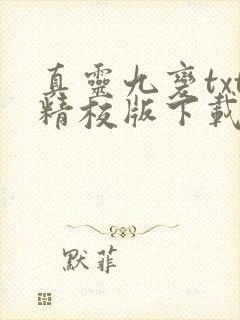 真靈九變txt
精校版下載
默菲